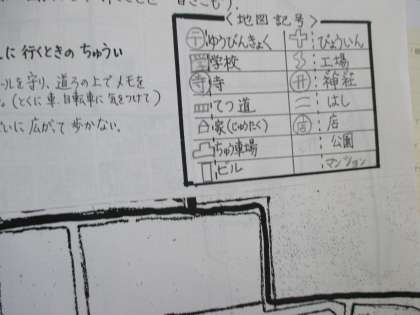 〈地図記号〉
〒 ゆうびんきょく
びょういん
学校
工場
寺 寺
神社
てつ道
はし
家(じゅうたく)
店 店
ちゅう車場
公園
ビル
マンション
に行くときの ちゅうい
ールを守り、道ろの上でメモを
。(とくに車、自転車に気をつけて)
いに広がって歩かない。